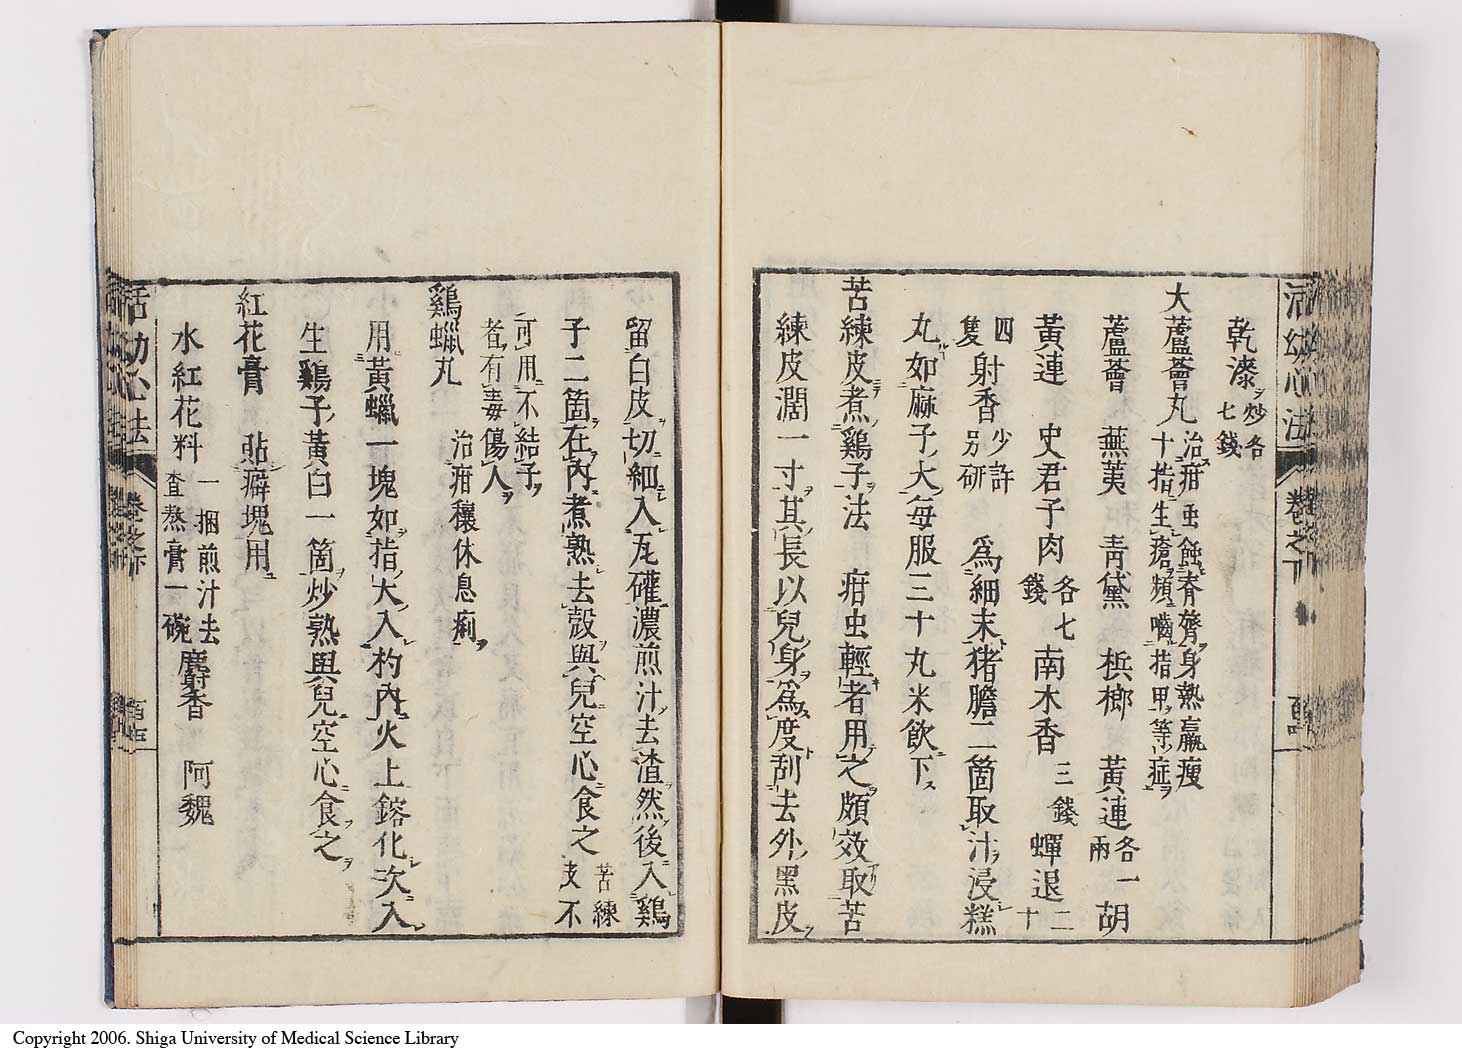 活幼心法 卷之下
乾漆炒各七錢
大蘆薈丸治疳虫蝕脊膂身熱羸瘦十指生瘡頻嚙指甲等症
蘆薈 蕪荑 青黛 梹榔 黃連各一兩 胡
黃連 史君子肉各七錢 南木香三錢 蟬退二十
四隻 射香少許別研 為細末猪膽二箇取汁浸糕
丸如麻子大每服三十丸米飲下
苦練皮煮鷄子法 疳虫輕者用之頗效取苦
練皮濶一寸其長以兒身為度刮去外黑皮
留白皮切細入瓦礶濃煎汁去渣然後入鷄
子二箇在內煮熟去殼與兒空心食之苦練皮不
可用不結子者有毒傷人
鷄蠟丸 治疳積休息痢
用黃蠟一塊如指大入杓內火上鎔化次入
生鷄子黃白一箇炒熟與兒空心食之
紅花膏 貼癖塊用
水紅花料一捆煎汁去查熬膏一碗 麝香 阿魏
活幼心法 卷之下
Copyright 2006. Shiga University of Medical Science Library